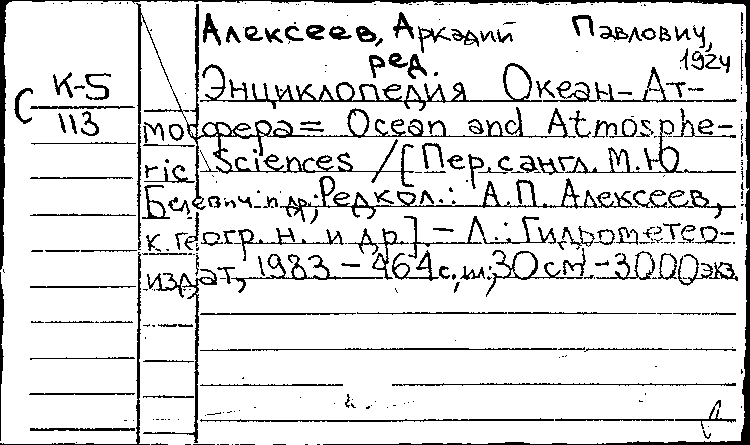 Алексеев, Аркадий Павлович,
ред. 1924
К-5
С 113
Энциклопедия Океан-Ат-
мосфера = Ocean and Atmosphe-
ric Sciences / [Пер. с англ. М.Ю.
Белевич и др; Редкол.: А.П. Алексеев,
к. геогр. н. и др.]. - Л.: Гидрометео-
издат, 1983 - 464 с, ил; 30 см. - 3000 экз.